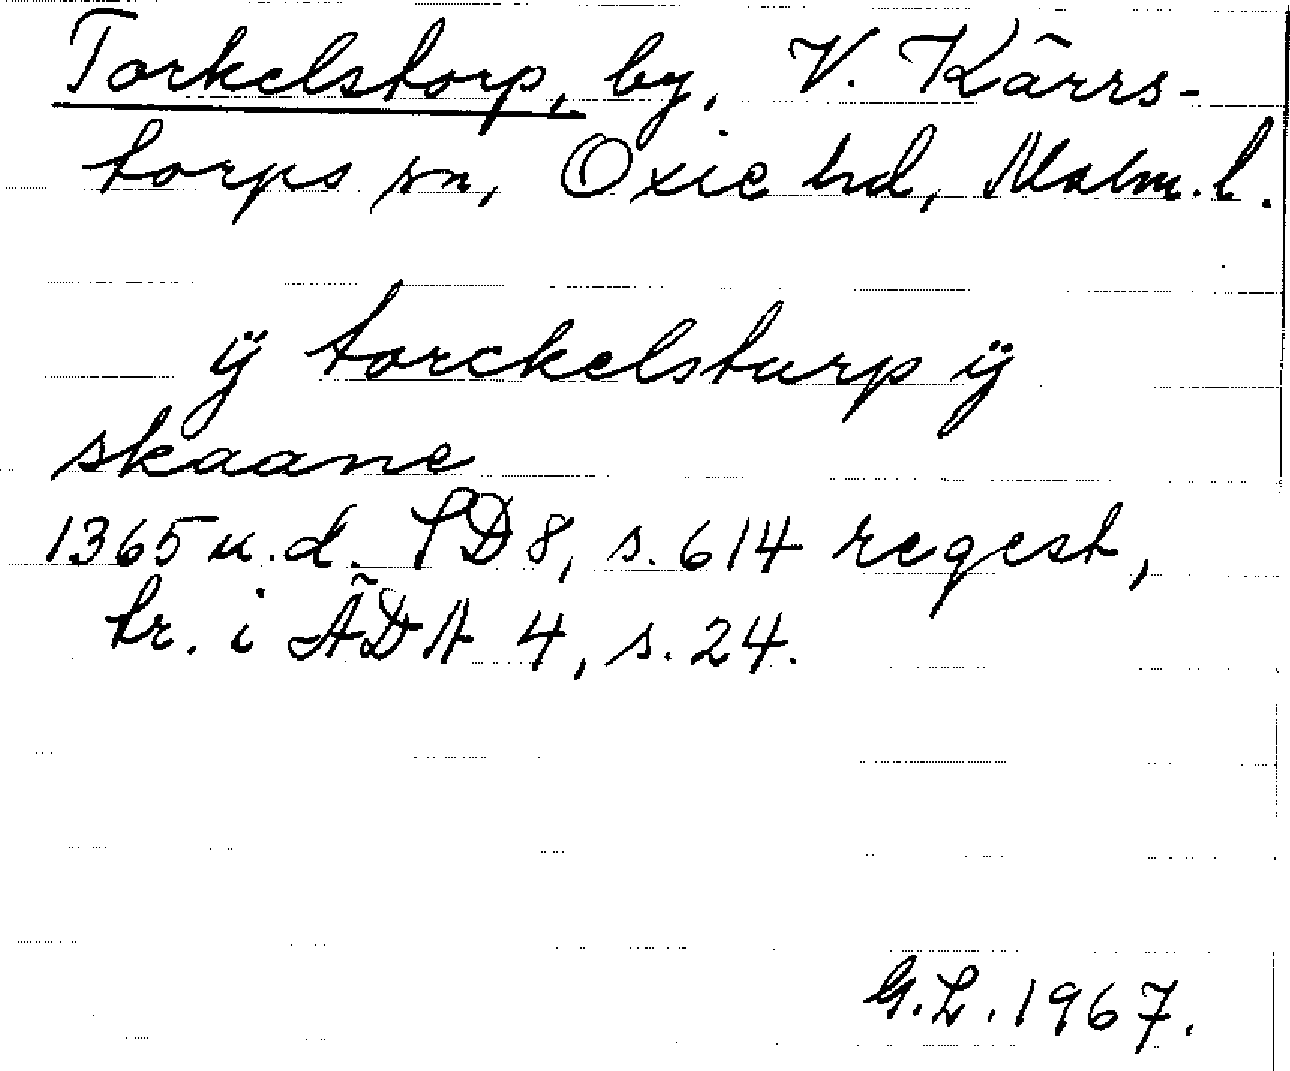 Torkelstorp, by, V. Kärrs-
torps sn, Oxie hd, Malm. l.
ÿ torckelsturp ÿ
skaane
1365 u.d. SD 8, s. 614 regest,
tr. i ÄDA 4, s. 24.
G.L. 1967.